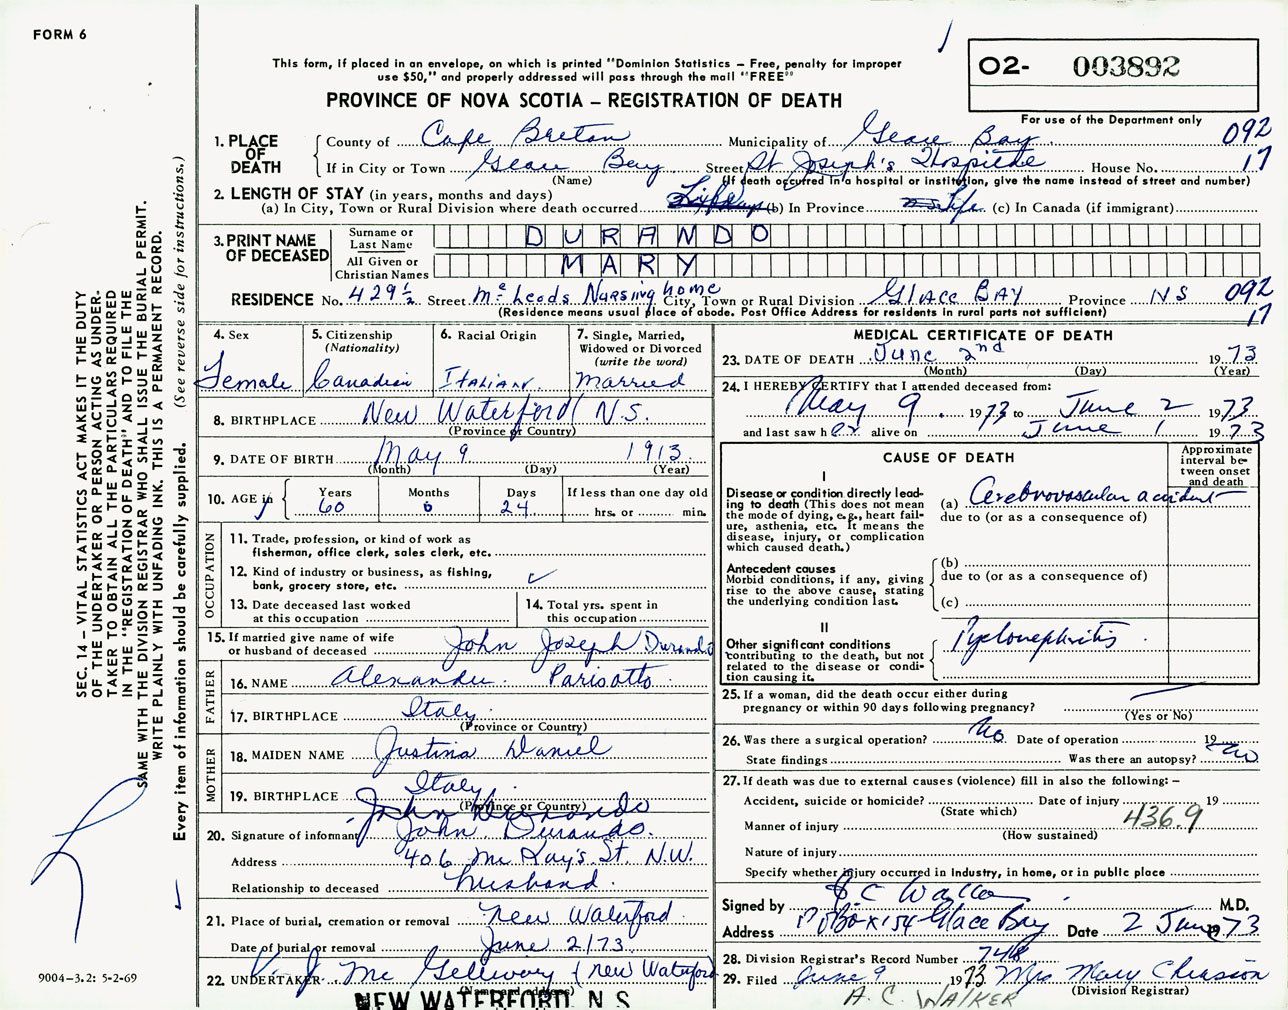 FORM 6
This form, if placed in an envelope, on which is printed "Dominion Statistics – Free, penalty for improper
use $50," and properly addressed will pass through the mail "FREE"
O2- 003892
For use of the Department only
PROVINCE OF NOVA SCOTIA – REGISTRATION OF DEATH
1. PLACE OF DEATH County of Cape Breton Municipality of Glace Bay 092
If in City or Town Glace Bay Street St Joseph's Hospital House No. 17
(Name) (If death occurred in a hospital or institution, give the name instead of street and number)
2. LENGTH OF STAY (in years, months and days)
(a) In City, Town or Rural Division where death occurred (b) In Province Life (c) In Canada (if immigrant)
3. PRINT NAME OF DECEASED Surname or Last Name DURANDO
All Given or Christian Names MARY
RESIDENCE No. 429½ Street McLeods Nursing home City, Town or Rural Division GLACE BAY Province NS 092
(Residence means usual place of abode. Post Office Address for residents in rural parts not sufficient) 17
4. Sex Female
5. Citizenship (Nationality) Canadian
6. Racial Origin ITALIAN
7. Single, Married, Widowed or Divorced (write the word) Married
8. BIRTHPLACE New Waterford N.S.
(Province or Country)
9. DATE OF BIRTH May 9 1913
(Month) (Day) (Year)
10. AGE in Years 60 Months 0 Days 24 If less than one day old hrs. or min.
OCCUPATION
11. Trade, profession, or kind of work as
fisherman, office clerk, sales clerk, etc.
12. Kind of industry or business, as fishing,
bank, grocery store, etc.
13. Date deceased last worked
at this occupation
14. Total yrs. spent in
this occupation
15. If married give name of wife
or husband of deceased John Joseph Durando
FATHER
16. NAME Alexander Parisotto
17. BIRTHPLACE Italy
(Province or Country)
MOTHER
18. MAIDEN NAME Justina Daniel
19. BIRTHPLACE Italy
(Province or Country)
John Durando
20. Signature of informant John Durando.
Address 406 McKay's St. N.W.
Relationship to deceased husband.
21. Place of burial, cremation or removal New Waterford
Date of burial or removal June 2/73
22. UNDERTAKER V. J. Mc Gillivary (New Waterford
(Name and address)
NEW WATERFORD, N.S.
MEDICAL CERTIFICATE OF DEATH
23. DATE OF DEATH June 2nd 1973
(Month) (Day) (Year)
24. I HEREBY CERTIFY that I attended deceased from:
May 9. 1973 to June 2 1973
and last saw her alive on June 1 1973
CAUSE OF DEATH
Approximate
interval be-
tween onset
and death
I
Disease or condition directly lead-
ing to death (This does not
mean the mode of dying, e.g., heart fail-
ure, asthenia, etc. It means the
disease, injury, or complication
which caused death.)
(a) Cerebrovascular accident
due to (or as a consequence of)
Antecedent causes
Morbid conditions, if any, giving
rise to the above cause, stating
the underlying condition last.
(b)
due to (or as a consequence of)
(c)
II
Other significant conditions
contributing to the death, but not
related to the disease or condi-
tion causing it.
Pyelonephritis
25. If a woman, did the death occur either during
pregnancy or within 90 days following pregnancy?
(Yes or No)
26. Was there a surgical operation? No Date of operation 19
State findings Was there an autopsy? No
27. If death was due to external causes (violence) fill in also the following: –
Accident, suicide or homicide? Date of injury 19
(State which)
Manner of injury 436.9
(How sustained)
Nature of injury
Specify whether injury occurred in Industry, in home, or in public place
Signed by A C Walker M.D.
Address P O Box 154 Glace Bay Date 2 June 1973
28. Division Registrar's Record Number 748
29. Filed June 9 1973 Mrs Mary Chiasson
(Division Registrar)
A. C. WALKER
SEC. 14 – VITAL STATISTICS ACT MAKES IT THE DUTY
OF THE UNDERTAKER OR PERSON ACTING AS UNDER-
TAKER TO OBTAIN ALL THE PARTICULARS REQUIRED
IN THE "REGISTRATION OF DEATH" AND TO FILE THE
SAME WITH THE DIVISION REGISTRAR WHO SHALL ISSUE THE BURIAL PERMIT.
WRITE PLAINLY WITH UNFADING INK. THIS IS A PERMANENT RECORD.
Every item of information should be carefully supplied. (See reverse side for instructions.)
9004–3.2: 5-2-69